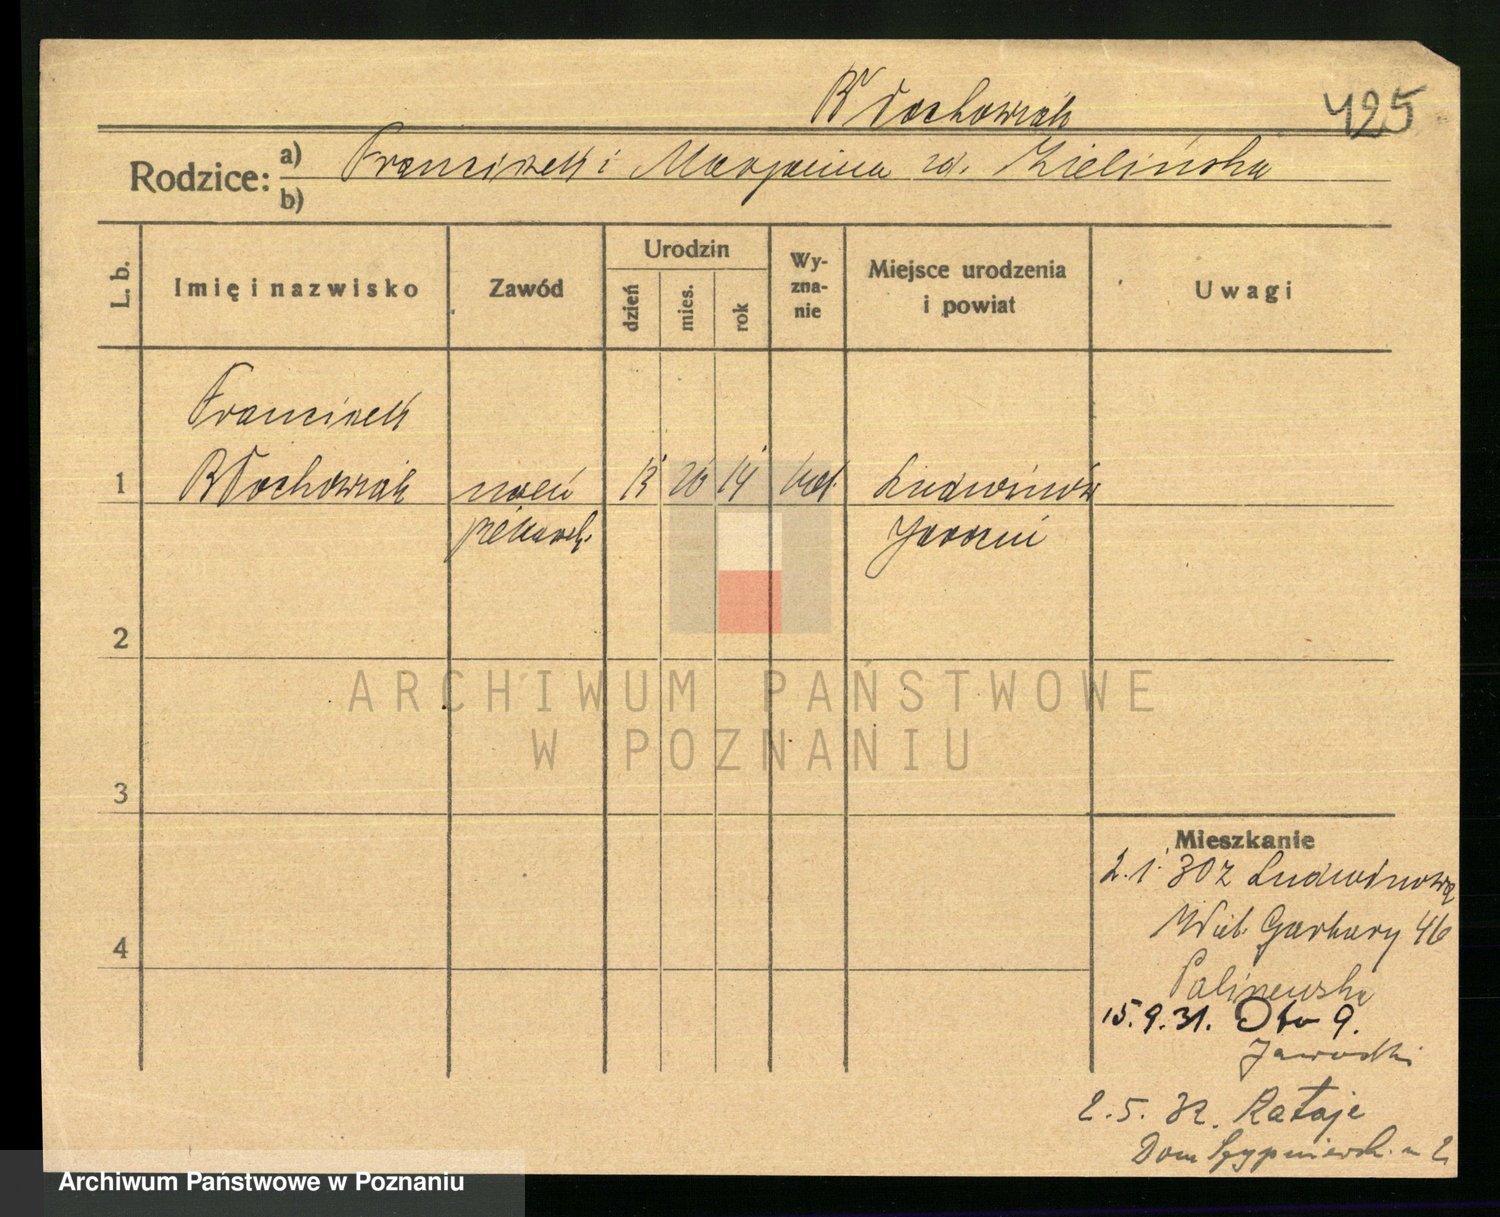 Błochowiak
425
Rodzice: a) Franciszek i Marjanna zd. Zielińska
b)
L. b.
Imię i nazwisko
Zawód
Urodzin
dzień
mies.
rok
Wy-
zna-
nie
Miejsce urodzenia
i powiat
Uwagi
Franciszek
1 Błochowiak uczeń 13 10 14 kat. Ludwinów
piekarsk. Jarocin
2
ARCHIWUM PAŃSTWOWE
W POZNANIU
3
Mieszkanie
2.1.30 z Ludwinowa
Wiel. Garbary 46
4
15.9.31. 9.
2.5.32. Rataje
Dom
Archiwum Państwowe w Poznaniu